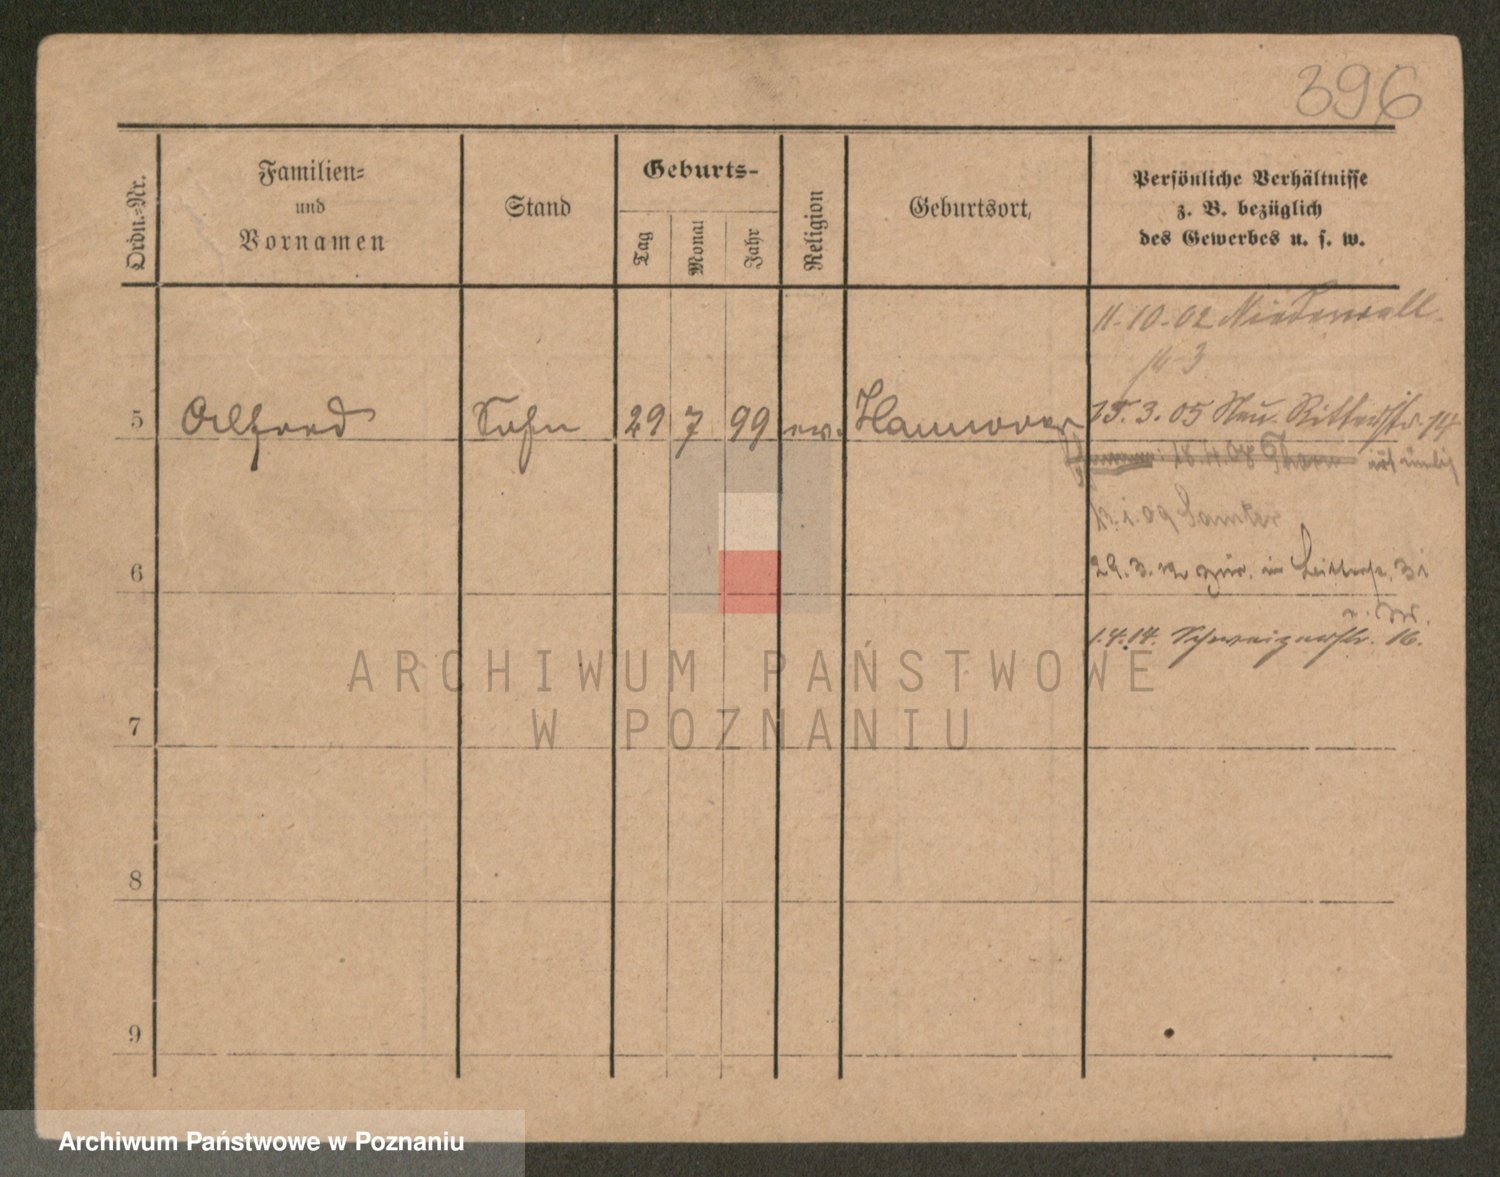 396
Ordn.=Nr.
Familien=
und
Vornamen
Stand
Geburts-
Tag
Monat
Jahr
Religion
Geburtsort,
Persönliche Verhältnisse
z. B. bezüglich
des Gewerbes u. s. w.
11.10.02 Niederwall
3
5 Alfred Sohn 29 7 99 ev. Hannover 15.3.05 Neu. Ritterstr. 14
18.4.08 Thorn
09 Samter
6 29.3. 31
1.4.14. 16.
7
8
9
ARCHIWUM PAŃSTWOWE
W POZNANIU
Archiwum Państwowe w Poznaniu